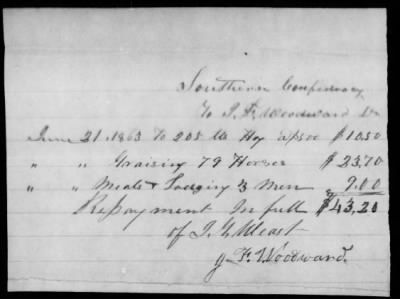 Southern Confederacy
To J. F. Woodward Dr
June 21 1863 To 205 lb Hay $10.50
" " Graising 79 Horses $23.70
" " Meals & Lodging 3 Men 9.00
Repayment In full $43,20
of J. Y. Meast
J. F. Woodward.